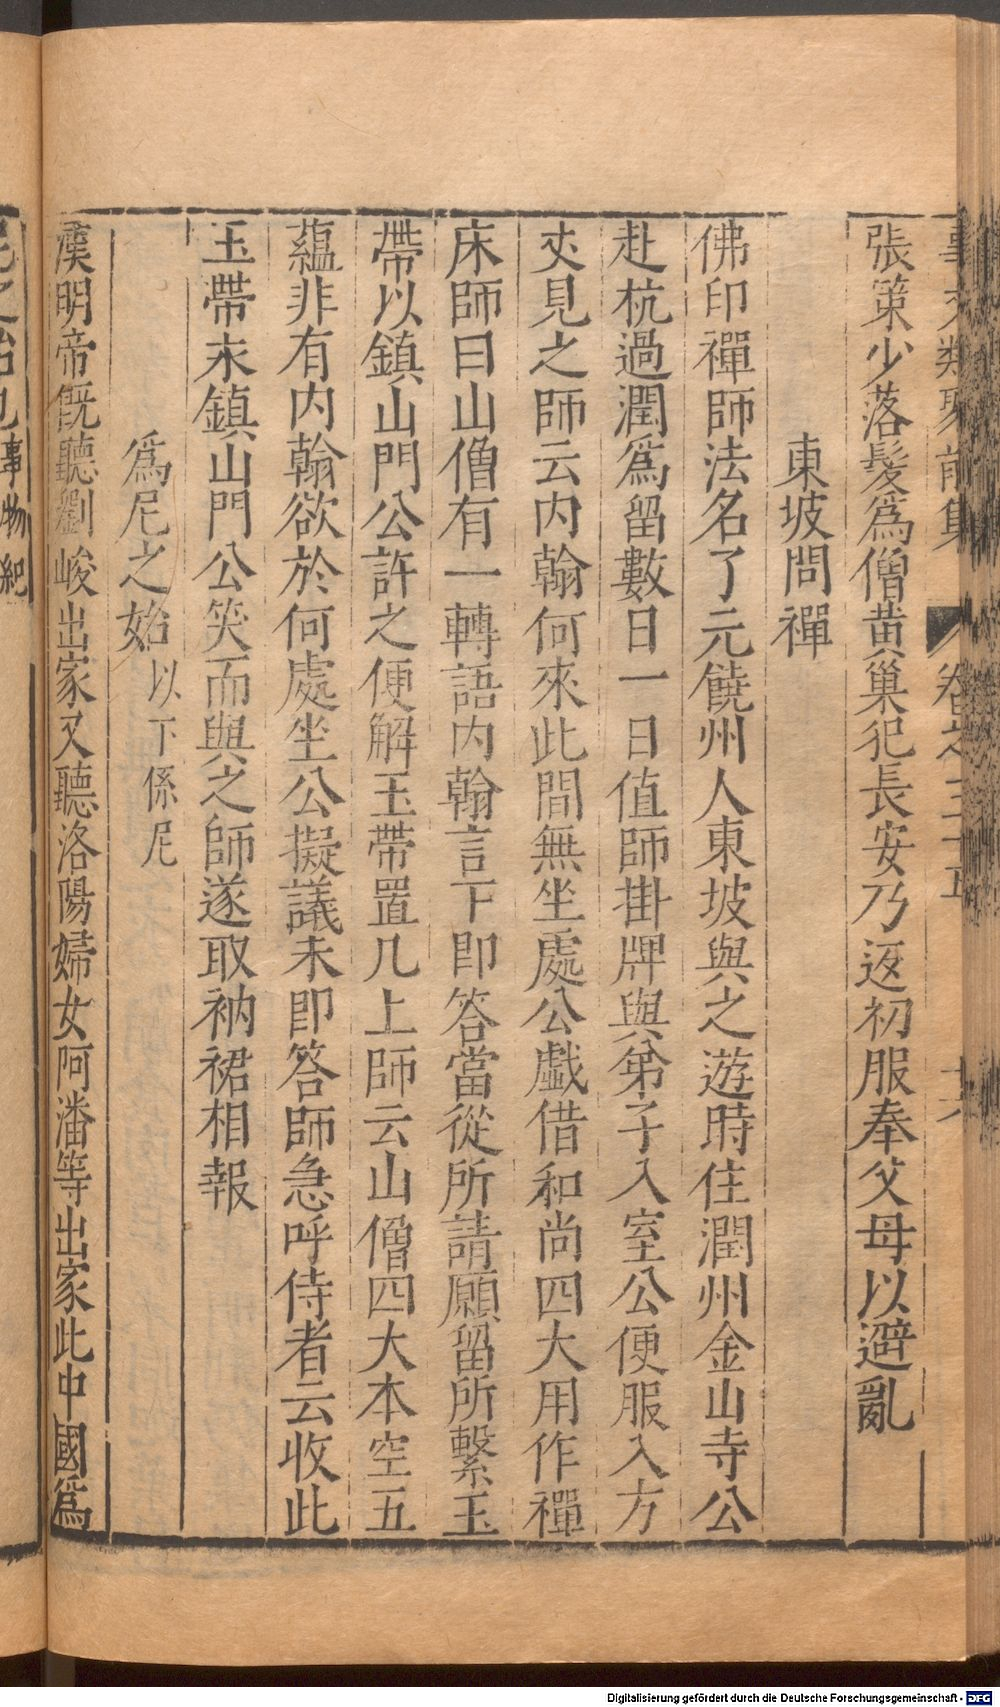 事文類聚前集 卷之三十五 十六
張策少落髮爲僧黄巢犯長安乃返初服奉父母以避亂
東坡問禪
佛印禪師法名了元饒州人東坡與之遊時住潤州金山寺公
赴杭過潤爲留數日一日值師掛牌與弟子入室公便服入方
丈見之師云内翰何來此間無坐處公戲借和尚四大用作禪
床師曰山僧有一轉語内翰言下即答當從所請願留所繫玉
帶以鎮山門公許之便解玉帶置几上師云山僧四大本空五
藴非有内翰欲於何處坐公擬議未即答師急呼侍者云收此
玉帶永鎮山門公笑而與之師遂取衲裙相報
爲尼之始以下係尼
漢明帝既聽劉峻出家又聽洛陽婦女阿潘等出家此中國爲
尼之始也事物紀
Digitalisierung gefördert durch die Deutsche Forschungsgemeinschaft - DFG